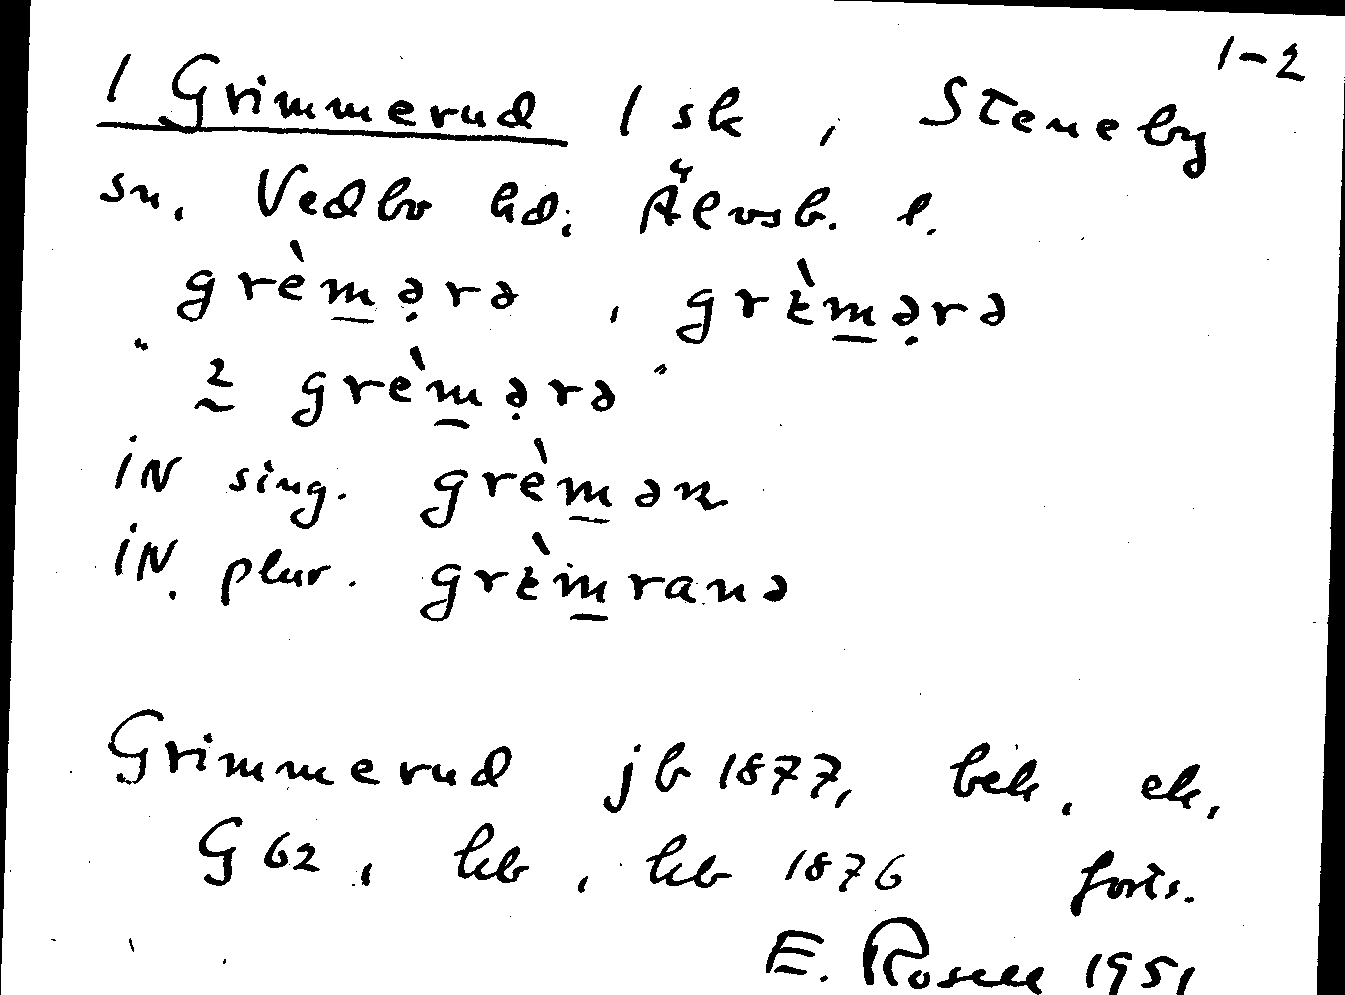 1-2
1 Grimmerud 1 sk, Steneby
sn, Vedbo hd, Älvsb. l.
grèm̲ə̣rə, grɛ̀m̲ə̣rə
" 2 grèm̲ə̣rə "
iN sing. grèm̲ən
iN. plur. grɛ̀m̲ranə
Grimmerud jb 1877, bek, ek,
G 62, hb, hb 1876 forts.
E. Rosell 1951